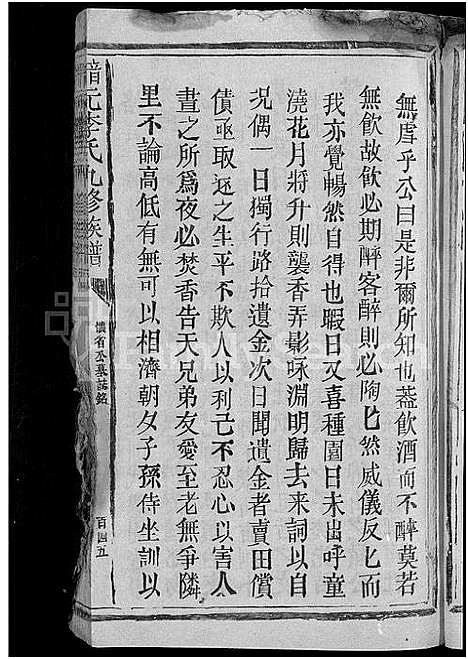 無虐乎公曰是非爾所知也葢飲酒而不醉莫若
無飲故飲必期醉客醉則必陶匕然威儀反匕而
我亦覺暢然自得也暇日又喜種園日未出呼童
澆花月將升則襲香弄影咏淵明歸去來詞以自
况偶一日獨行路拾遺金次日聞遺金者賣田償
債亟取返之生平不欺人以利己不忍心以害人
晝之所為夜必焚香告天兄弟友愛至老無爭隣
里不論高低有無可以相濟朝夕子孫侍坐訓以
李氏九修族譜
懷省公墓誌銘
百四五